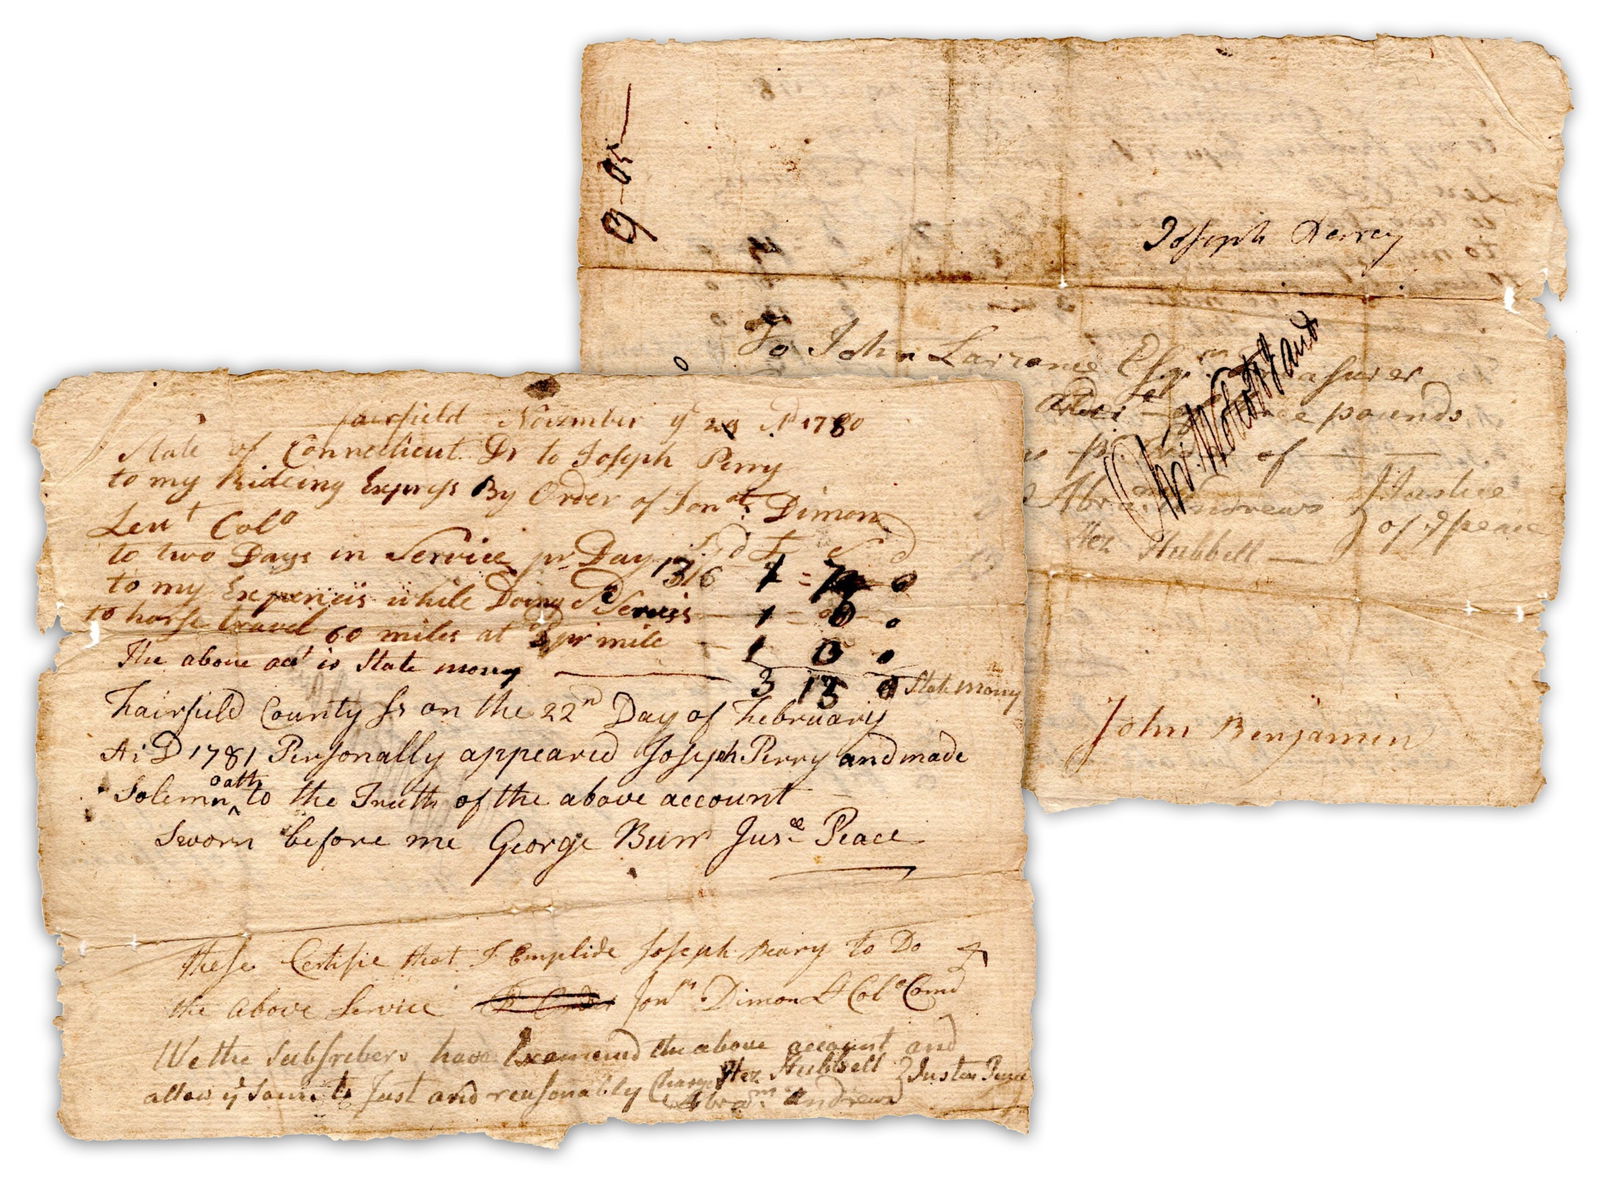 Fairfield November ye 29 AD 1780
State of Connecticut Dr to Joseph Perry
to my Rideing Express By Order of Jonat. Dimon
Leut Colo
to two Days in Service pr Day 13/6 1 = 7 = 0
to my Expences while Doing sd Servis — 1 = 0 0
to horse travel 60 miles at pr mile — 1 0
The above act is State mony — 3 13 0 State mony
Fairfield County Ss on the 22nd Day of February
A:D 1781 Personally appeared Joseph Perry and made
Solemn oath to the Truth of the above account
Sworn before me George Burr Jusce Peace
these Certifie that I Emplide Joseph Peary to Do
the above Service Jonn. Dimon Lt Colo Comd
We the Subscribers have Examiend the above account and
allow ye Same to Just and reasonably Charged Hez Hubbell } Justes Peace
Abram Andrews
9-05-
Joseph Perrey
To John Larrence Esqr Treasurer
pounds
of
Abram Andrews } Justice
Hez Hubbell — } of ye peace
John Benjamin